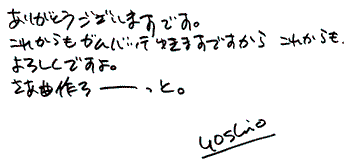 ありがとうございますです。
これからもがんばって ゆきますですから これからも、
よろしくですよ。
さあ曲作ろ――っと。
yoshio